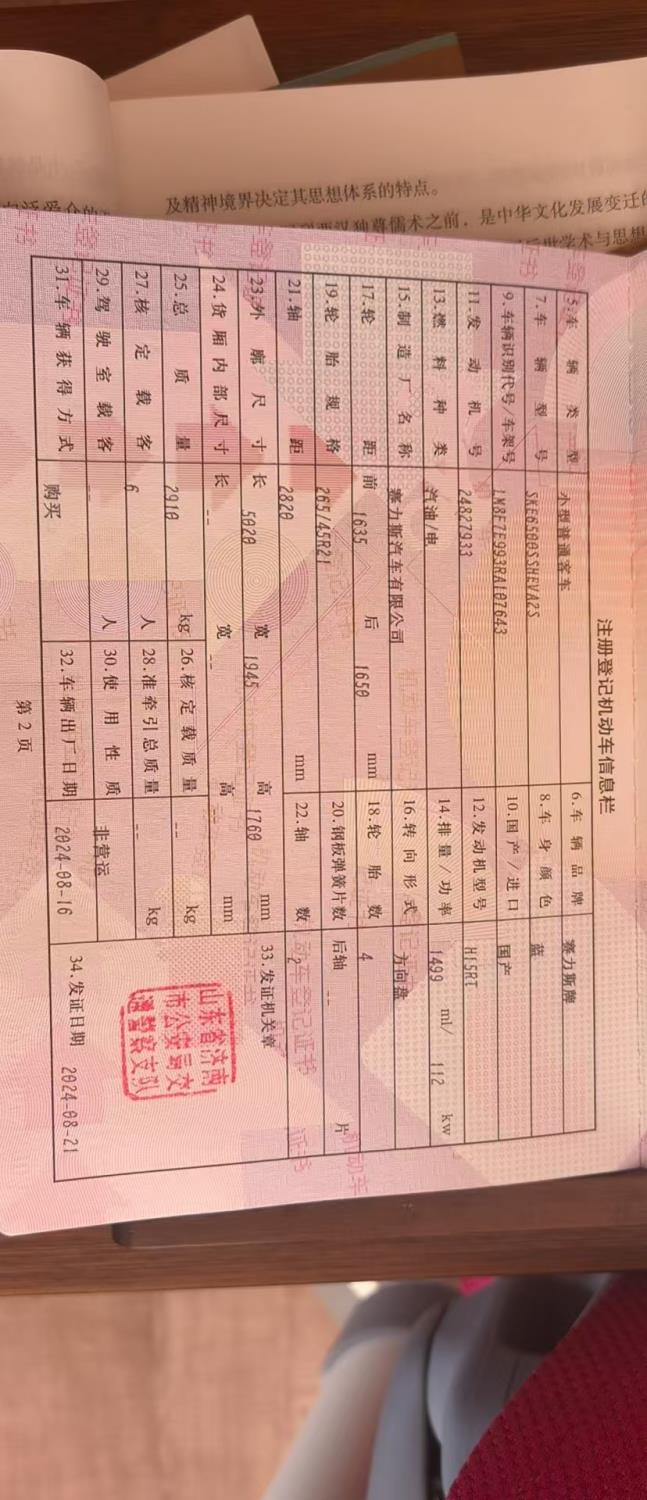 及精神境界决定其思想体系的特点。
独尊儒术之前，是中华文化发展变迁的
世学术与思想
注册登记机动车信息栏
5.车辆类型 小型普通客车 6.车辆品牌 赛力斯牌
7.车辆型号 SKE6500SSHEVA2S 8.车身颜色 蓝
9.车辆识别代号/车架号 LM8F7E993RA107643 10.国产/进口 国产
11.发动机号 24827933 12.发动机型号 H15RT
13.燃料种类 汽油/电 14.排量/功率 1499 ml/ 112 kw
15.制造厂名称 赛力斯汽车有限公司 16.转向形式 方向盘
17.轮距 前 1635 后 1650 mm 18.轮胎数 4
19.轮胎规格 265/45R21 20.钢板弹簧片数 后轴 -- 片
21.轴距 2820 mm 22.轴数 2
23.外廓尺寸 长 5020 宽 1945 高 1760 mm
24.货厢内部尺寸 长 -- 宽 -- 高 -- mm
25.总质量 2910 kg 26.核定载质量 -- kg
27.核定载客 6 人 28.准牵引总质量 -- kg
29.驾驶室载客 -- 人 30.使用性质 非营运
31.车辆获得方式 购买 32.车辆出厂日期 2024-08-16
33.发证机关章
山东省济南
市公安局交
通警察支队
34.发证日期 2024-08-21
第2页